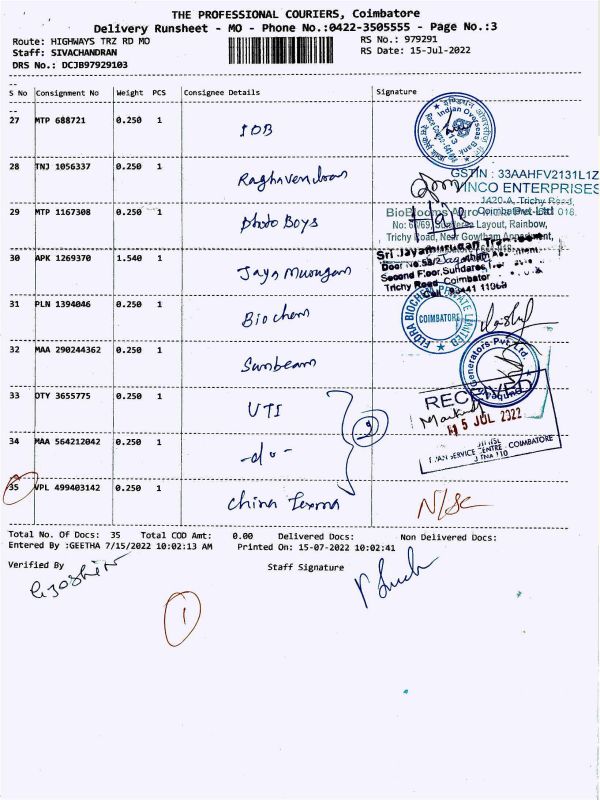 THE PROFESSIONAL COURIERS, Coimbatore
Delivery Runsheet - MO - Phone No.:0422-3505555 - Page No.:3
Route: HIGHWAYS TRZ RD MO
RS No.: 979291
Staff: SIVACHANDRAN
RS Date: 15-Jul-2022
DRS No.: DCJB97929103
S No Consignment No Weight PCS Consignee Details Signature
27 MTP 688721 0.250 1 IOB
Indian Overseas Bank
28 TNJ 1056337 0.250 1 Raghavendran
GSTIN : 33AAHFV2131L1Z
VINCO ENTERPRISES
1420-A, Trichy Road,
Coimbatore - 641 018.
29 MTP 1167308 0.250 1 Photo Boys
BioBlooms Agro
No: 66/69, Sundaresa Layout, Rainbow,
Trichy Road, Near Gowtham Apartment,
30 APK 1269370 1.540 1 Jaya Murugan
Second Floor, Sundaresa
Trichy Road, Coimbator
31 PLN 1394046 0.250 1 Biochem
FLORA BIOCHEM PRIVATE LIMITED
COIMBATORE
32 MAA 290244362 0.250 1 Sunbeam
Generators Pvt. Ltd.
33 OTY 3655775 0.250 1 UTI
RECEIVED
15 JUL 2022
34 MAA 564212042 0.250 1 -do-
SERVICE CENTRE COIMBATORE
35 VPL 499403142 0.250 1 China Texma
N/Sc
Total No. Of Docs: 35 Total COD Amt: 0.00 Delivered Docs: Non Delivered Docs:
Entered By :GEETHA 7/15/2022 10:02:13 AM Printed On: 15-07-2022 10:02:41
Verified By
Staff Signature
1